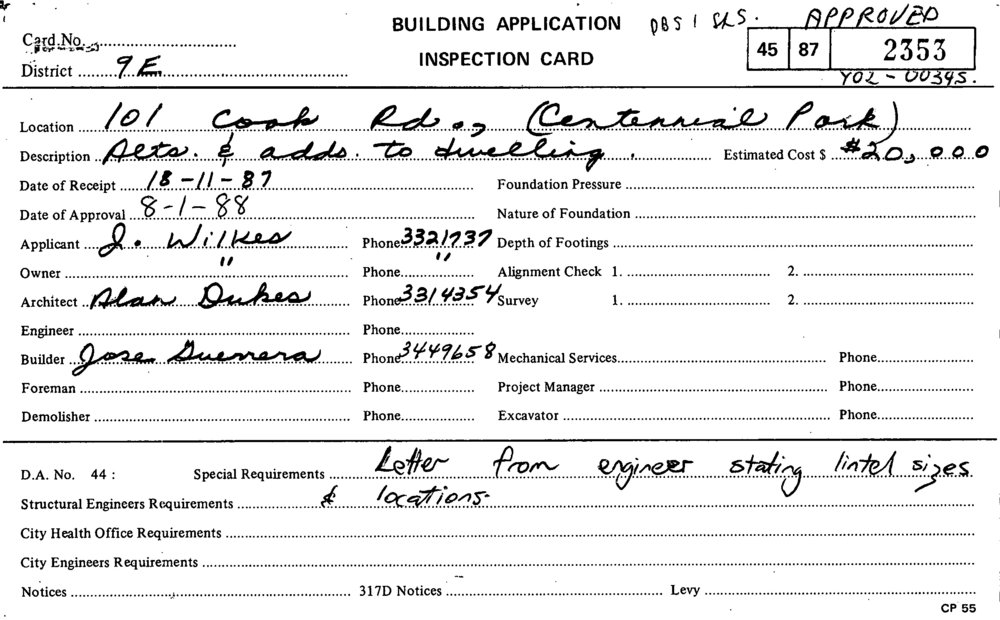 BUILDING APPLICATION DBS 1 SRS. APPROVED
Card No.
INSPECTION CARD 45 87 2353
District 9 E.
Y02 - 00395.
Location 101 Cook Rd., (Centennial Park)
Description Alts. & adds. to dwelling. Estimated Cost $ $20,000
Date of Receipt 18-11-87 Foundation Pressure
Date of Approval 8-1-88 Nature of Foundation
Applicant J. Wilkes Phone 3321737 Depth of Footings
Owner " Phone " Alignment Check 1. 2.
Architect Alan Dukes Phone 3314354 Survey 1. 2.
Engineer Phone
Builder Jose Guerrera Phone 3449658 Mechanical Services Phone
Foreman Phone Project Manager Phone
Demolisher Phone Excavator Phone
D.A. No. 44 : Special Requirements Letter from engineer stating lintel sizes
Structural Engineers Requirements & locations-
City Health Office Requirements
City Engineers Requirements
Notices 317D Notices Levy
CP 55